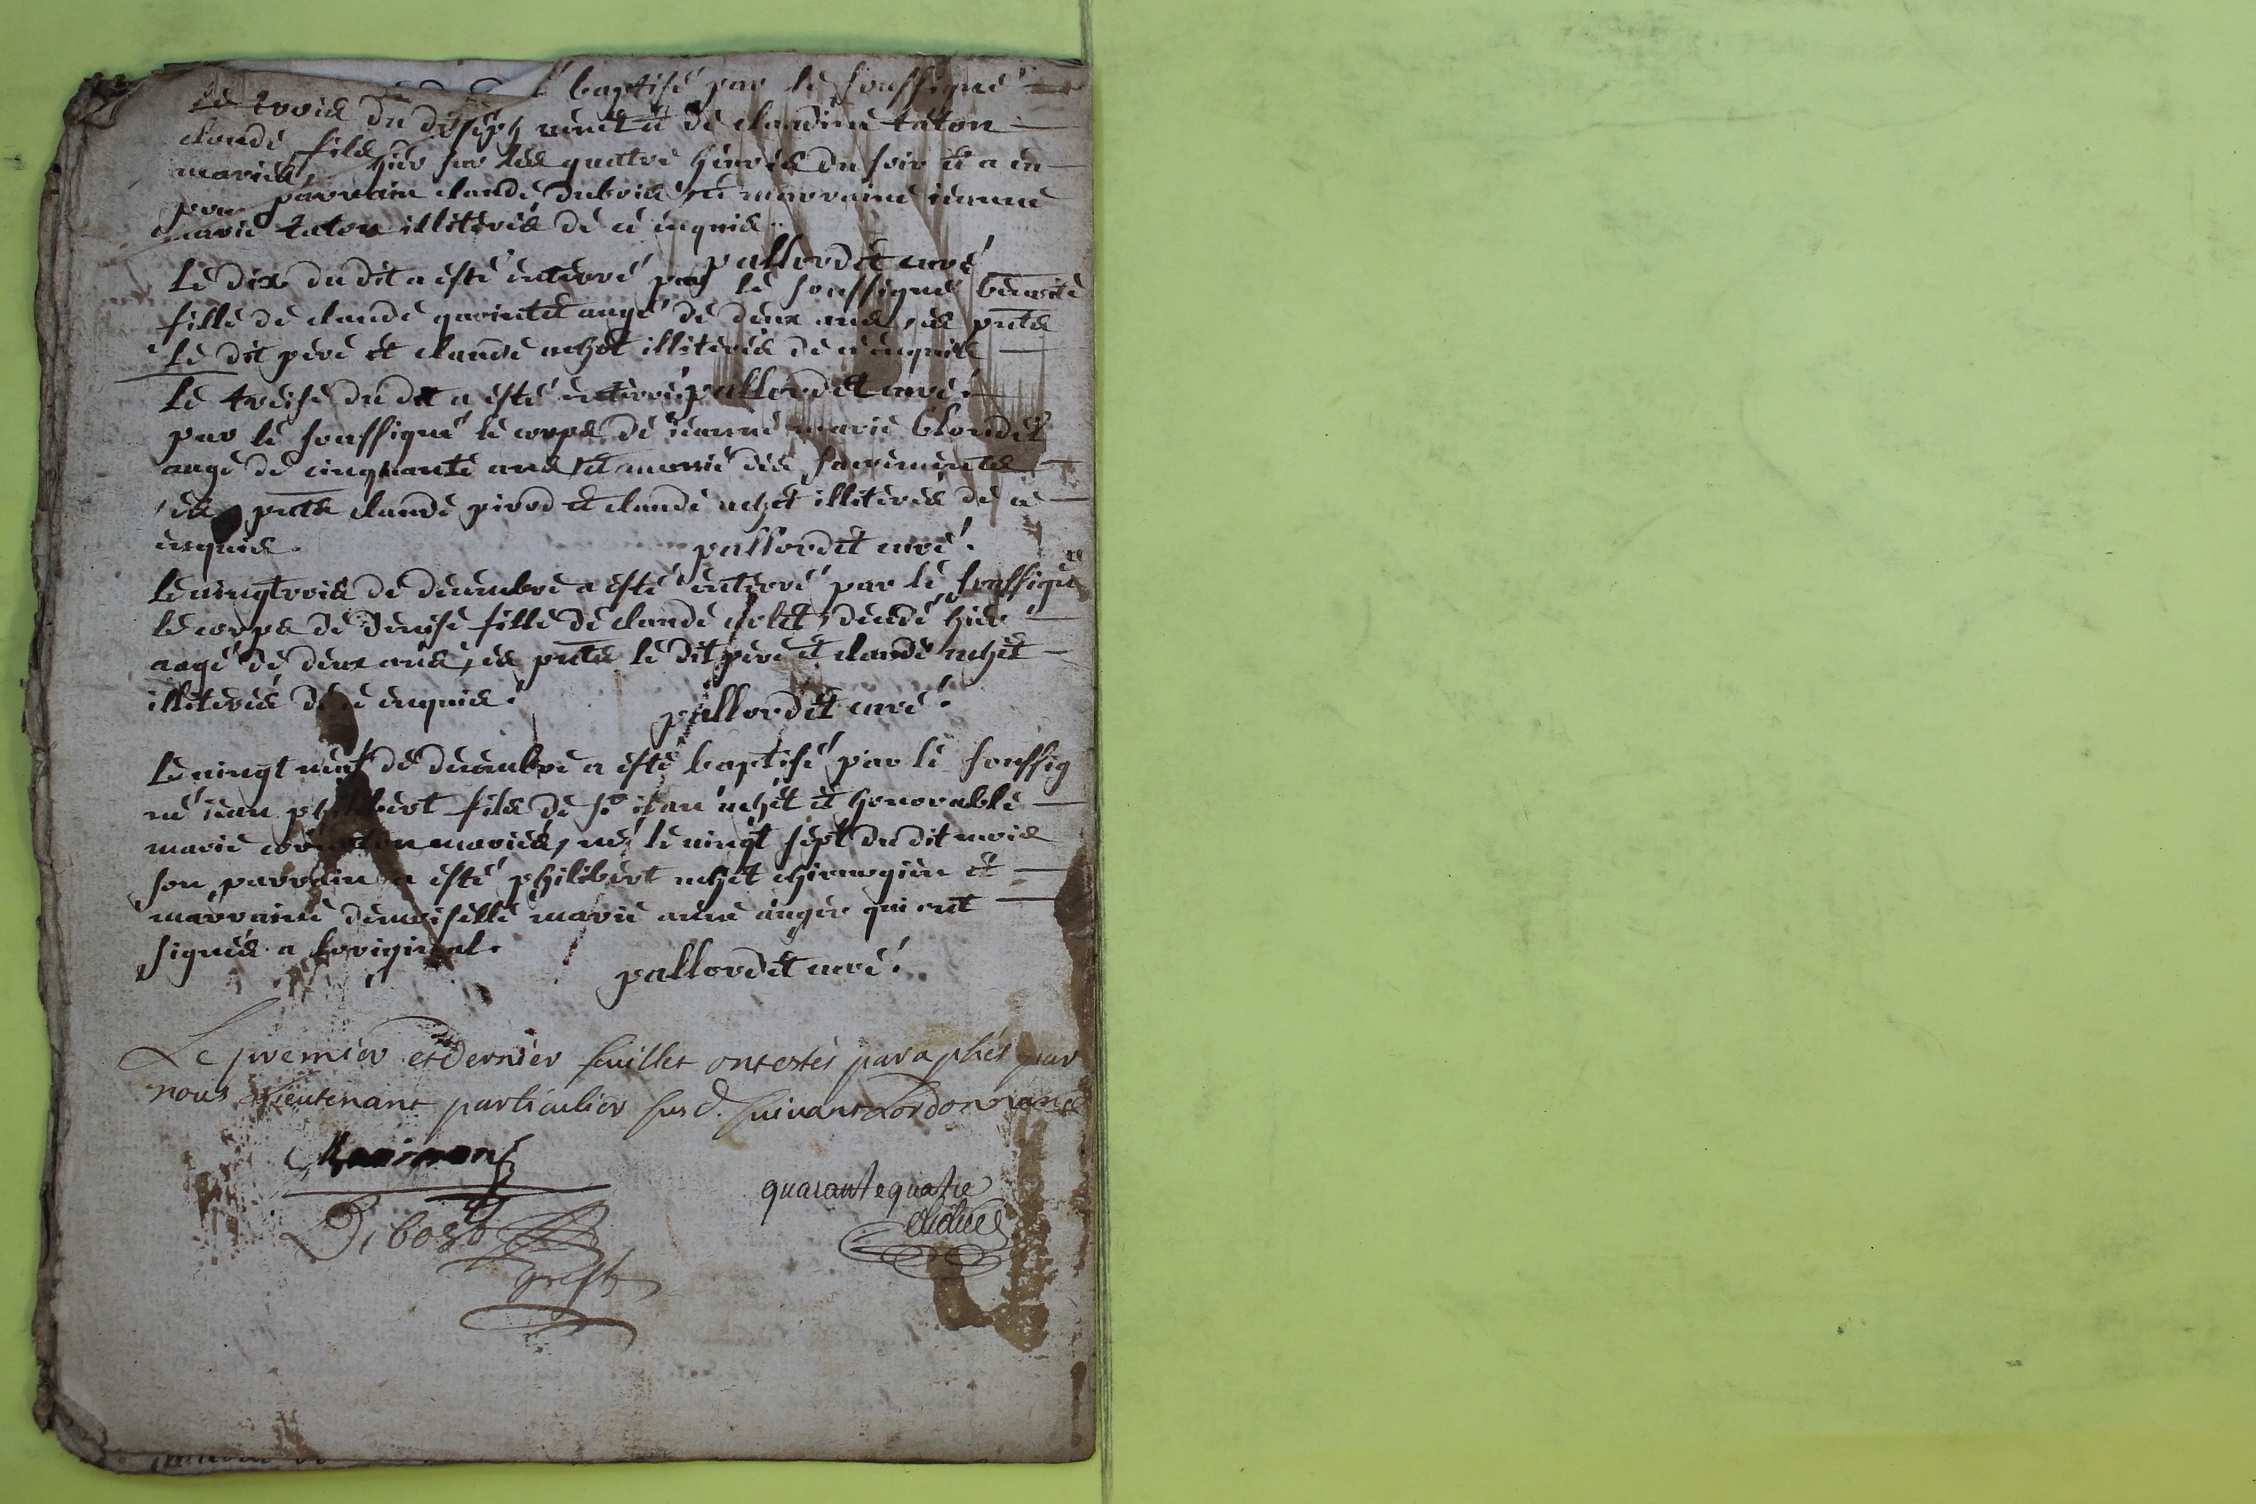 Le trois du baptisé par le soussigné
claude fils et de claudine taton
mariés, hier sur les quatre heures du soir il a eu
pour parrain claude dubois et marraine jeanne
marie taton illiterés de ce enquis.
pallordet curé
Le dix du dit a esté enterré par le soussigné benoite
fille de claude angé de deux ans, es pnts
Le dit pere et claude illiterés de ce enquis
Le treise du dit a esté enterré pallordet curé.
par le soussigné le corps de jeanne marie blondet
angé de cinquante ans, et munié des sacrements
es pnts claude pirod et claude illiterés de ce
enquis. pallordet curé.
Le vingtrois de decembre a esté enterré par le soussigné
le corps de denise fille de claude decedé hier
aagé de deux ans, es pnts le dit pere et claude
illiterés de ce enquis. pallordet curé.
Le vingt neuf de decembre a esté baptisé par le soussig
né jean philibert fils de sr jean et honorable
marie mariés, né le vingt sept du dit mois
son parrain a esté philibert chirurgien et
marraine demoiselle marie anne anger qui ont
signés a loriginal.
pallordet curé.
Le premier et dernier feuillet ont estés paraphés par
nous Lieutenant particulier susd. suivant Lordonnance
quarante quatre